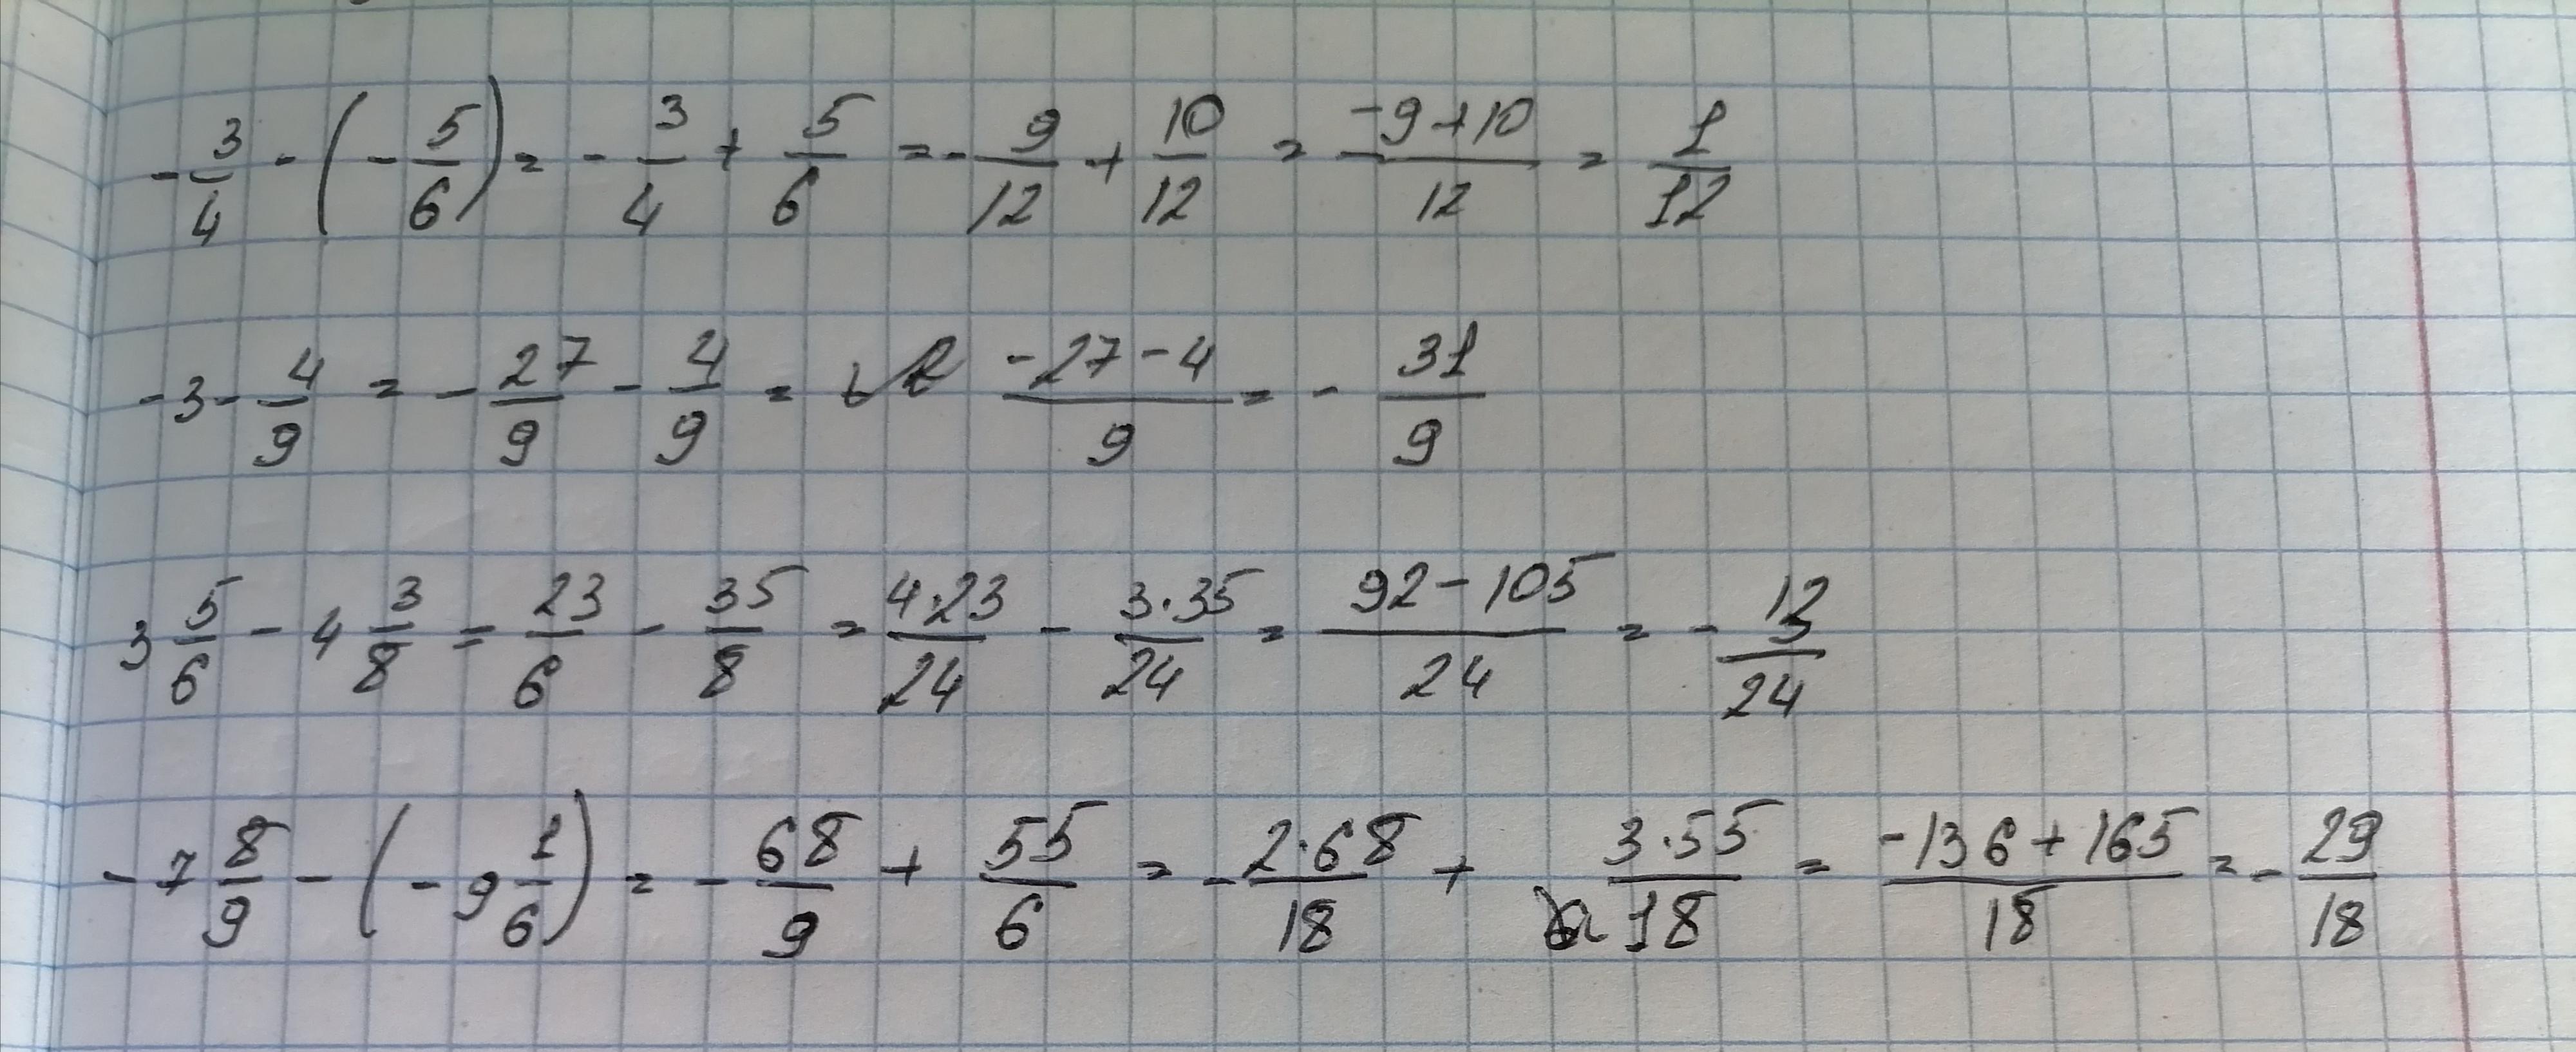 -3/4 - (-5/6) = -3/4 + 5/6 = -9/12 + 10/12 = (-9+10)/12 = 1/12
-3 - 4/9 = -27/9 - 4/9 = (-27-4)/9 = -31/9
3 5/6 - 4 3/8 = 23/6 - 35/8 = 4·23/24 - 3·35/24 = (92-105)/24 = -13/24
-7 8/9 - (-9 1/6) = -68/9 + 55/6 = -2·68/18 + 3·55/18 = (-136+165)/18 = -29/18